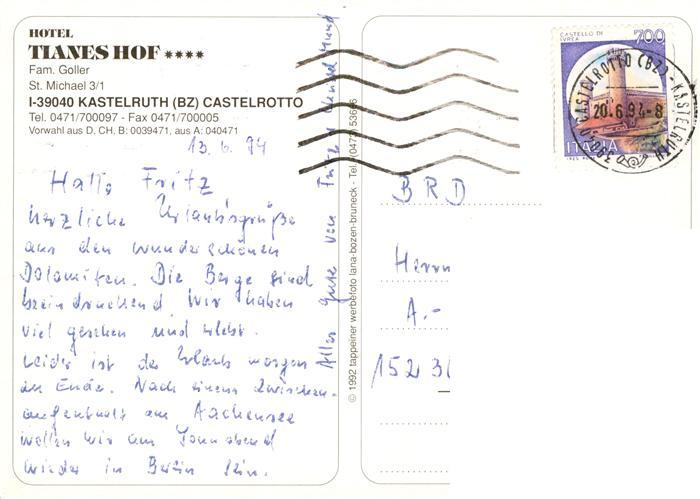 HOTEL
TIANES HOF ****
Fam. Goller
St. Michael 3/1
I-39040 KASTELRUTH (BZ) CASTELROTTO
Tel. 0471/700097 - Fax 0471/700005
Vorwahl aus D, CH, B: 0039471, aus A: 040471
13. 6. 94
Hallo Fritz
herzliche Urlaubsgrüße
aus den wunderschönen
Dolomiten. Die Berge sind
beeindruckend. Wir haben
viel gesehen und erlebt.
Leider ist der Urlaub morgen
zu Ende. Nach einem Zwischen-
aufenthalt am Aachensee
wollen wir am Sonnabend
wieder in Berlin sein.
Alles gute von Fritz und
© 1992 tappeiner werbefoto lana-bozen-bruneck - Tel. (0473) 53666
CASTELLO DI
IVREA
700
ITALIA
39040 CASTELROTTO (BZ) - KASTELRUTH
20.6.94-8
BRD
Herrn
A.-
152 31